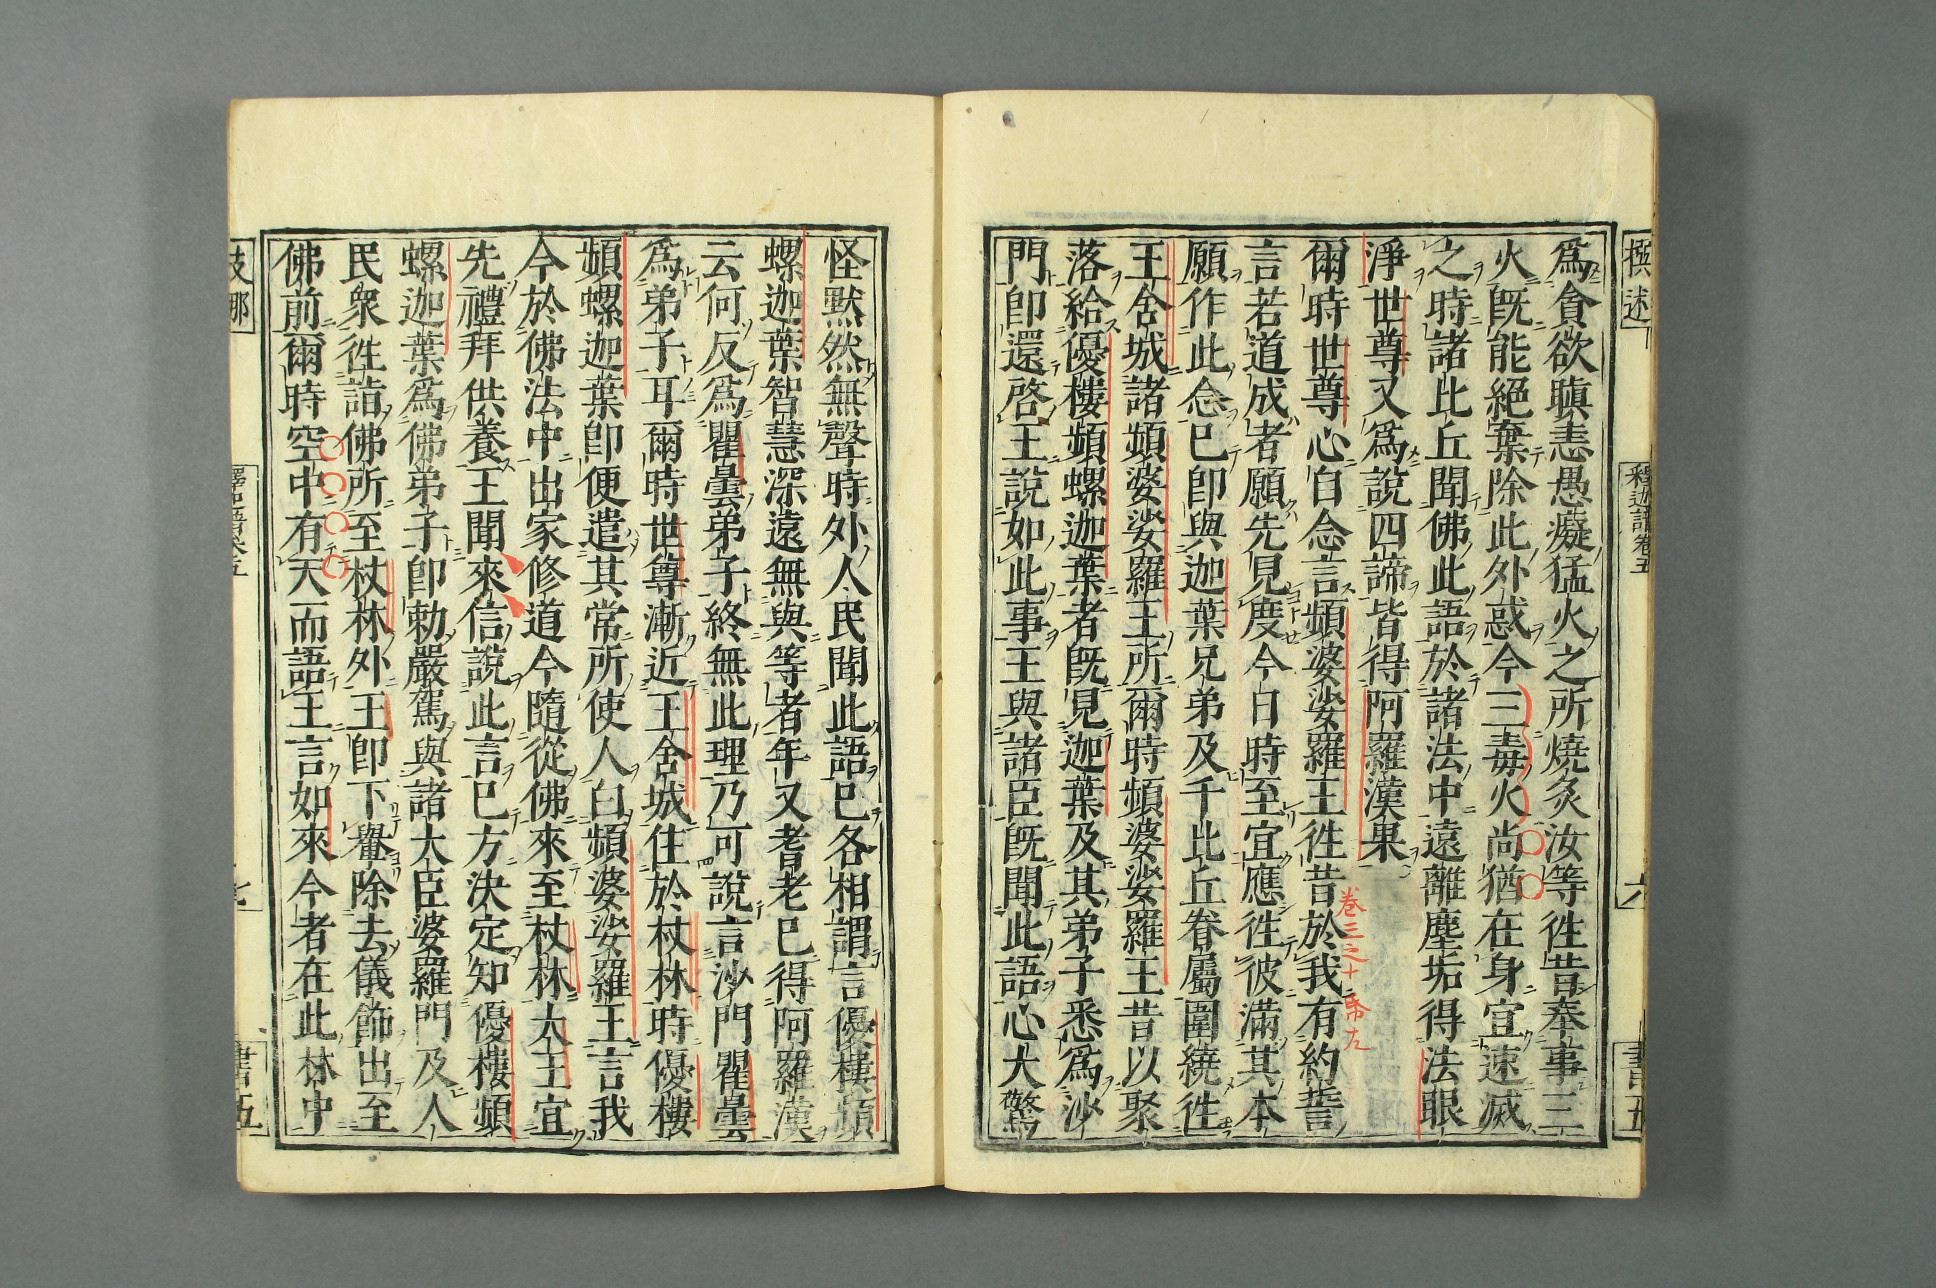 撰述
釋迦譜卷五
六
書五
爲貪欲瞋恚愚癡猛火之所燒炙汝等徃昔奉事三
火既能絕棄除此外惑今三毒火尚猶在身宜速滅
之時諸比丘聞佛此語於諸法中遠離塵垢得法眼
淨世尊又爲說四諦皆得阿羅漢果
卷三之十二帋左
爾時世尊心自念言頻婆娑羅王徃昔於我有約誓
言若道成者願先見度今日時至宜應徃彼滿其本
願作此念已卽與迦葉兄弟及千比丘眷屬圍繞徃
王舍城諸頻婆娑羅王所爾時頻婆娑羅王昔以聚
落給優樓頻螺迦葉者既見迦葉及其弟子悉爲沙
門卽還啓王說如此事王與諸臣既聞此語心大驚
怪默然無聲時外人民聞此語已各相謂言優樓頻
螺迦葉智慧深遠無與等者年又耆老已得阿羅漢
云何反爲瞿曇弟子終無此理乃可說言沙門瞿曇
爲弟子耳爾時世尊漸近王舍城住於杖林時優樓
頻螺迦葉卽便遣其常所使人白頻婆娑羅王言我
今於佛法中出家修道今隨從佛來至杖林大王宜
先禮拜供養王聞來信說此言已方決定知優樓頻
螺迦葉爲佛弟子卽勅嚴駕與諸大臣婆羅門及人
民衆徃詣佛所至杖林外王卽下轝除去儀飾出至
佛前爾時空中有天而語王言如來今者在此林中
支那
七
書五